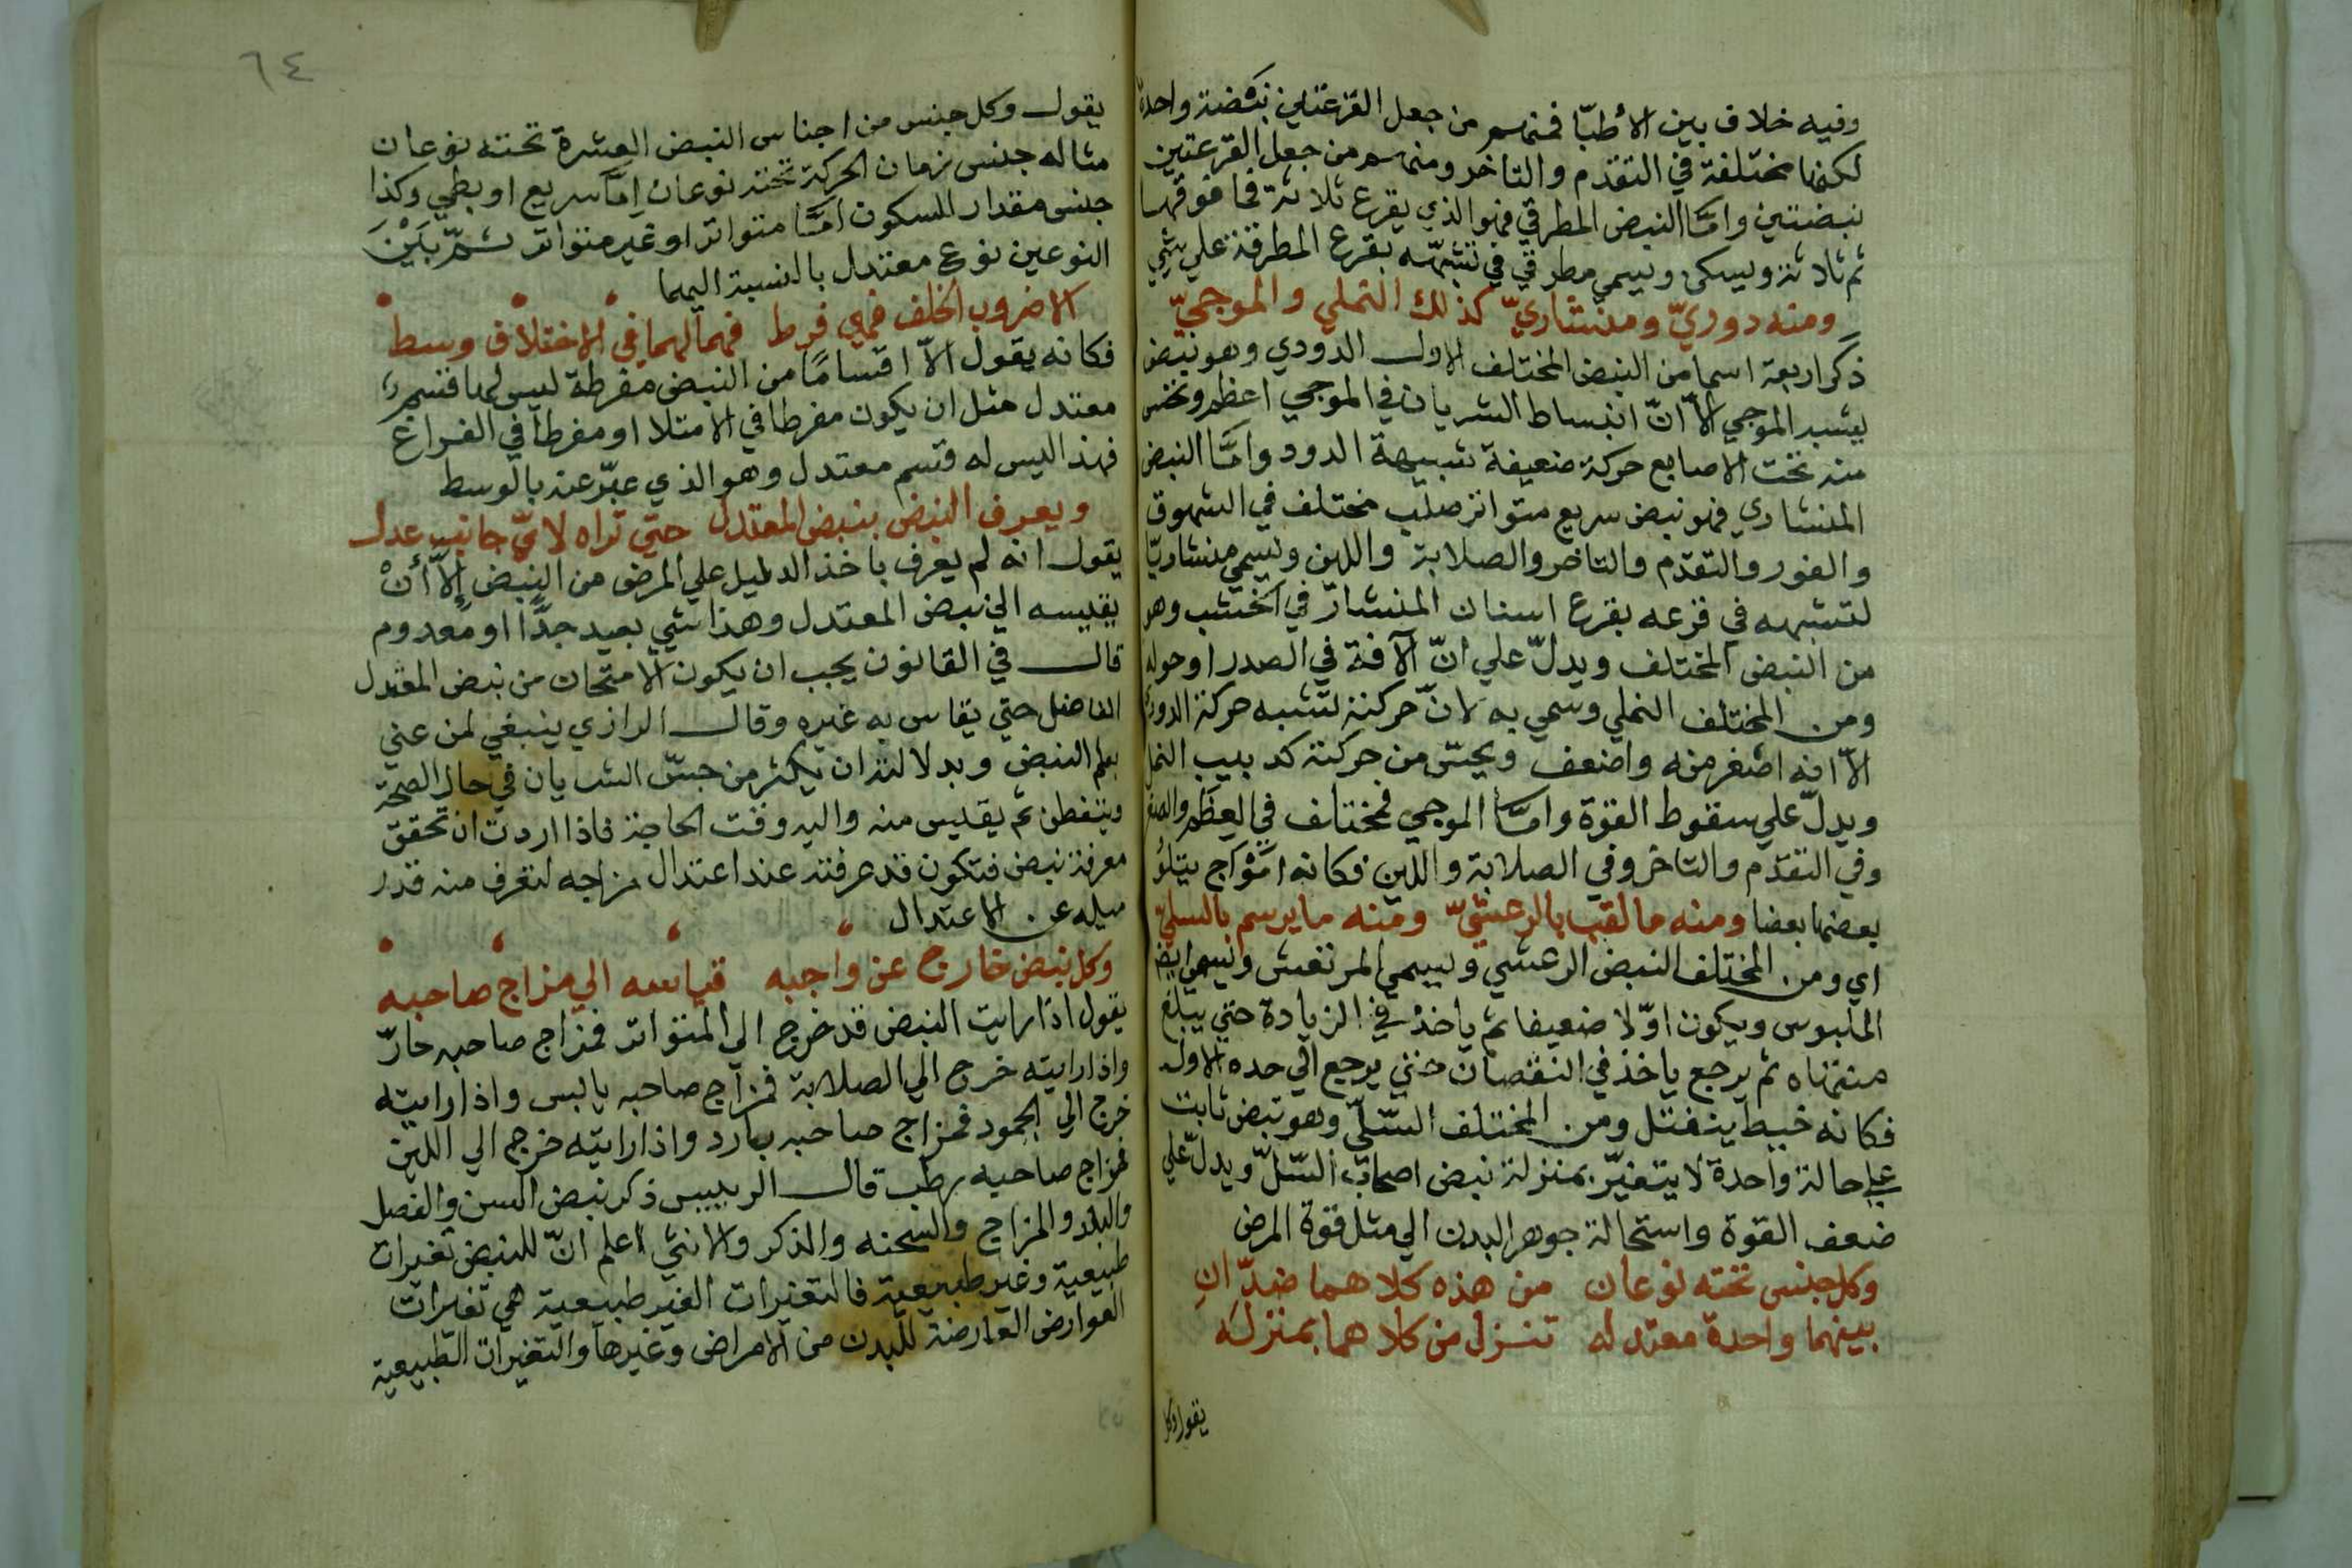 وفيه خلاف بين الأطبّا فمنهم من جعل القرعتين نبضة واحدة
لكنها مختلفة في التقدم والتاخر ومنهم من جعل القرعتين
نبضتين وامّا النبض المطرقي فهو الذي يقرع ثلاثة فما فوقها
ثم ثلاثة ويسكن ويسمي مطرقي في تشبّهه بقرع المطرقة علي شي
ومنه دوديّ ومنشاريّ كذلك النملي والموجيّ
ذكر اربعة اسما من النبض المختلف الاول الدودي وهو نبض
يشبه الموجي الاّ انّ انبساط الشريان في الموجي اعظم وتحس
منه تحت الاصابع حركة ضعيفة شبيهة الدود وامّا النبض
المنشاري فهو نبض سريع متواتر صلب مختلف في الشهوق
والغور والتقدّم والتاخر والصلابة واللين ويسمي منشاريّا
لتشبهه في قرعه بقرع اسنان المنشار في الخشب وهو
من النبض المختلف ويدلّ علي انّ الآفة في الصدر او حوله
ومن المختلف النملي وسمي به لانّ حركته تشبه حركة الدود
الاّ انه اصغر منه واضعف ويحسّ من حركته كدبيب النمل
ويدلّ علي سقوط القوة وامّا الموجي فمختلف في العظم والصغر
وفي التقدّم والتاخر وفي الصلابة واللين فكانه امواج يتلو
بعضها بعضا ومنه ما لقب بالرعشيّ ومنه ما يرسم بالسليّ
اي ومن المختلف النبض الرعشي ويسمي المرتعش ويسمي ايضا
الملبوس ويكون اوّلا ضعيفا ثم ياخذ في الزيادة حتي يبلغ
منتهاه ثم يرجع ياخذ في النقصان حتي يرجع الي حده الاول
فكانه خيط ينفتل ومن المختلف السّلّي وهو نبض ثابت
علي حالة واحدة لا يتغيّر بمنزلة نبض اصحاب السّلّ ويدلّ علي
ضعف القوة واستحالة جوهر البدن الي مثل قوة المرض
وكل جنس تحته نوعان من هذه كلاهما ضدّان
بينهما واحدة معتدله تنزل من كلاهما بمنزله
يقول وكل
٦٤
يقول وكل جنس من اجناس النبض العشرة تحته نوعان
مثاله جنس زمان الحركة تحته نوعان إمّا سريع او بطي وكذا
جنس مقدار السكون امّا متواتر او غير متواتر ثمّ بَيْنَ
النوعين نوع معتدل بالنسبة اليهما
الا ضروب الخلف فهي فرط فما لها في الاختلاف وسط
فكانه يقول الاّ اقسامًا من النبض مفرطة ليس لها قسم
معتدل مثل ان يكون مفرطا في الامتلا او مفرطا في الفراغ
فهذا ليس له قسم معتدل وهو الذي عبّر عنه بالوسط
ويعرف النبض بنبض المعتدل حتي تراه لايّ جانب عدل
يقول انه لم يعرف باخذ الدليل علي المرض من النبض إلاّ أنْ
يقيسه الي نبض المعتدل وهذا شي بعيد جدًّا او معدوم
قال في القانون يجب ان يكون الامتحان من نبض المعتدل
الفاضل حتي يقاس به غيره وقال الرازي ينبغي لمن عني
بعلم النبض وبدلالته ان يكثر من جسّ الشريان في حال الصحة
ويتفطن ثم يقيس منه واليه وقت الحاجة فاذا اردت ان تحقق
معرفة نبض فتكون قد عرفته عند اعتدال مزاجه لتعرف منه قدر
ميله عن الاعتدال
وكل نبض خارج عن واجبه قياسه الي مزاج صاحبه
يقول اذا رايت النبض قد خرج الي المتواتر فمزاج صاحبه حارّ
واذا رايته خرج الي الصلابة فمزاج صاحبه يابس واذا رايته
خرج الي الجمود فمزاج صاحبه بارد واذا رايته خرج الي اللين
فمزاج صاحبه رطب قال الرييس ذكر نبض السن والفصل
والبلد والمزاج والسحنه والذكر والانثي اعلم انّ للنبض تغيرات
طبيعية وغير طبيعية فالتغيرات الغير طبيعية هي تغيرات
العوارض العارضة للبدن من الامراض وغيرها والتغيرات الطبيعية